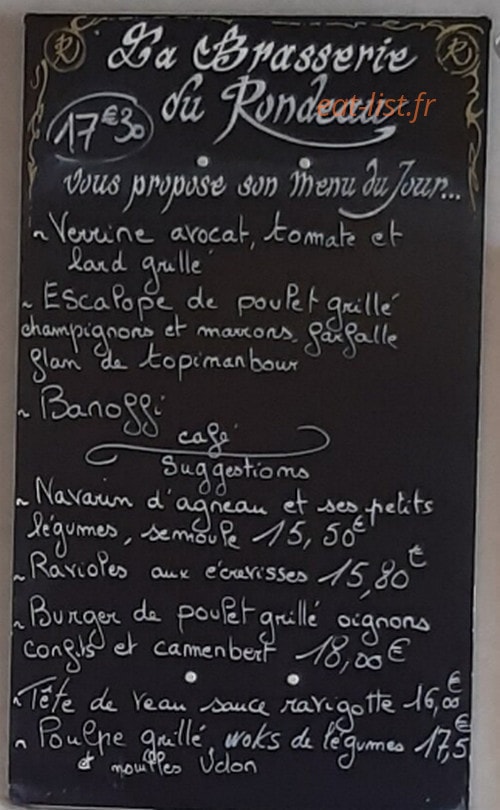 La Brasserie
du Rondeau
eat-list.fr
17€30
vous propose son Menu du Jour...
~ Verrine avocat, tomate et
lard grillé
~ Escalope de poulet grillé
champignons et marrons, farfalle
flan de topimanbour
~ Banoffi
café
Suggestions
~ Navarin d'agneau et ses petits
légumes, semoule 15,50€
~ Ravioles aux écrevisses 15,80€
~ Burger de poulet grillé oignons
confits et camembert 18,00€
~ Tête de veau sauce ravigotte 16,00€
~ Poulpe grillé, woks de légumes 17,5€
et nouilles Udon